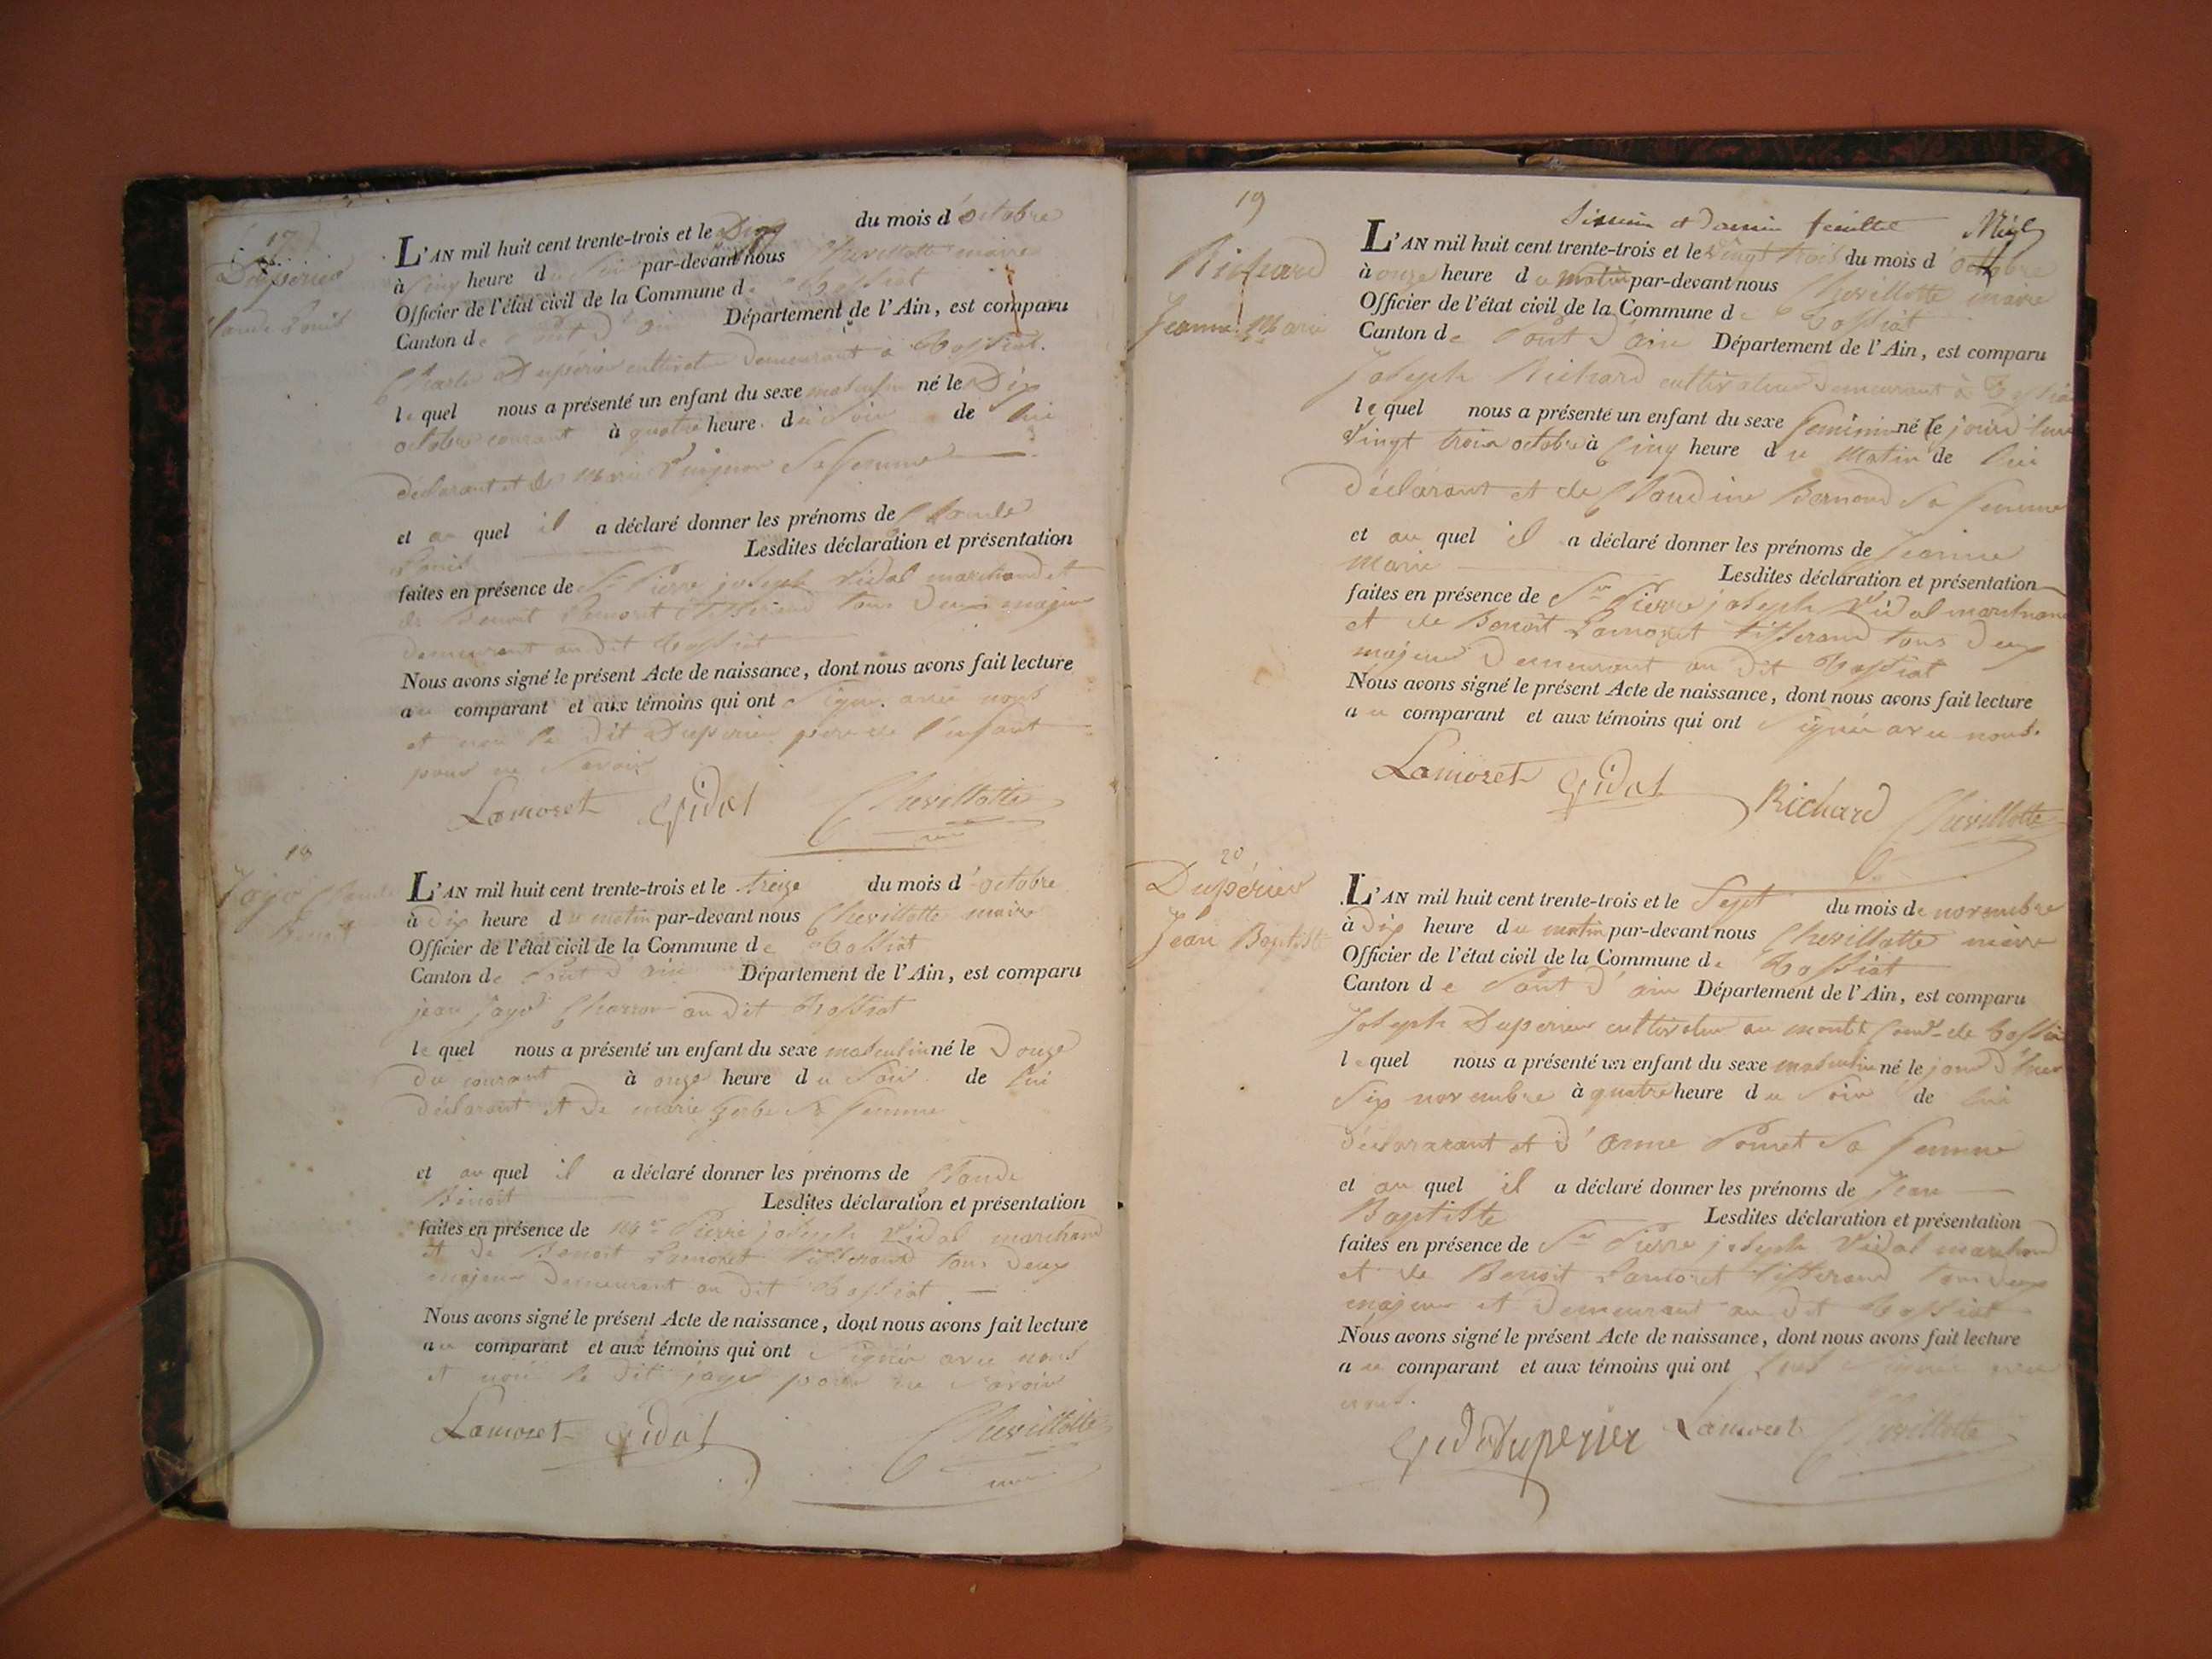 17
Dupérier
Claude Louis
L'AN mil huit cent trente-trois et le Dix du mois d'octobre
à Cinq heure du soir par-devant nous Chevillotte maire
Officier de l'état civil de la Commune de Tossiat
Canton de Pont d'ain Département de l'Ain, est comparu
Charles Dupérier cultivateur demeurant à Tossiat.
lequel nous a présenté un enfant du sexe masculin né le Dix
octobre courant à quatre heure du Soir de lui
déclarant et de Marie sa femme
et au quel il a déclaré donner les prénoms de Claude
Louis Lesdites déclaration et présentation
faites en présence de Sr Pierre joseph Vidal marchand et
de Benoit Lamoret tisserand tous deux majeur
demeurant au dit Tossiat
Nous avons signé le présent Acte de naissance, dont nous avons fait lecture
au comparant et aux témoins qui ont Signé avec nous
et non le dit Duperier pere de l'enfant
pour ne Savoir
Lamoret Vidal Chevillotte
18
Jayr Claude
Benoit
L'AN mil huit cent trente-trois et le treize du mois d'octobre
à Dix heure du matin par-devant nous Chevillotte maire
Officier de l'état civil de la Commune de Tossiat
Canton de Pont d'ain Département de l'Ain, est comparu
jean jayr Charron au dit Tossiat
lequel nous a présenté un enfant du sexe masculin né le Douze
du courant à onze heure du Soir de lui
déclarant et de marie Gerbe Sa femme
et au quel il a déclaré donner les prénoms de Claude
Benoit Lesdites déclaration et présentation
faites en présence de Pierre joseph Vidal marchand
et de Benoit Lamoret tisserand tous deux
majeur demeurant au dit Tossiat
Nous avons signé le présent Acte de naissance, dont nous avons fait lecture
au comparant et aux témoins qui ont Signé avec nous
et non le dit jayr pour ne Savoir
Lamoret Vidal Chevillotte
feuillet
19
Richard
Jeanne Marie
L'AN mil huit cent trente-trois et le Vingt trois du mois d'octobre
à onze heure du matin par-devant nous Chevillotte maire
Officier de l'état civil de la Commune de Tossiat
Canton de Pont d'ain Département de l'Ain, est comparu
Joseph Richard cultivateur demeurant à Tossiat
lequel nous a présenté un enfant du sexe feminin né le jourd'hui
Vingt trois octobre à Cinq heure du Matin de lui
déclarant et de Claudine Bernard Sa femme
et au quel il a déclaré donner les prénoms de Jeanne
Marie Lesdites déclaration et présentation
faites en présence de Sr Pierre joseph Vidal marchand
et de Benoit Lamoret tisserand tous deux
majeur Demeurant au dit Tossiat
Nous avons signé le présent Acte de naissance, dont nous avons fait lecture
au comparant et aux témoins qui ont Signé avec nous.
Lamoret Vidal Richard Chevillotte
20
Dupérier
Jean Baptiste
L'AN mil huit cent trente-trois et le Sept du mois de novembre
à Dix heure du matin par-devant nous Chevillotte maire
Officier de l'état civil de la Commune de Tossiat
Canton de Pont d'ain Département de l'Ain, est comparu
Joseph Duperier cultivateur au de Tossiat
lequel nous a présenté un enfant du sexe masculin né le jour d'hier
Six novembre à quatre heure du Soir de lui
déclararant et d'anne Pomet Sa femme
et au quel il a déclaré donner les prénoms de Jean
Baptiste Lesdites déclaration et présentation
faites en présence de Sr Pierre joseph Vidal marchand
et de Benoit Lamoret tisserand tous deux
majeur et Demeurant au dit Tossiat
Nous avons signé le présent Acte de naissance, dont nous avons fait lecture
au comparant et aux témoins qui ont tous Signé avec
nous.
Vidal Duperier Lamoret Chevillotte